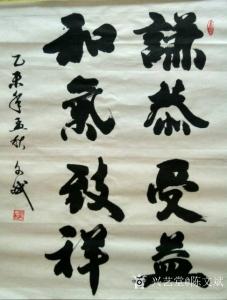 謙恭受益
和氣致祥
乙未年孟秋 文斌
兴艺堂@陈文斌